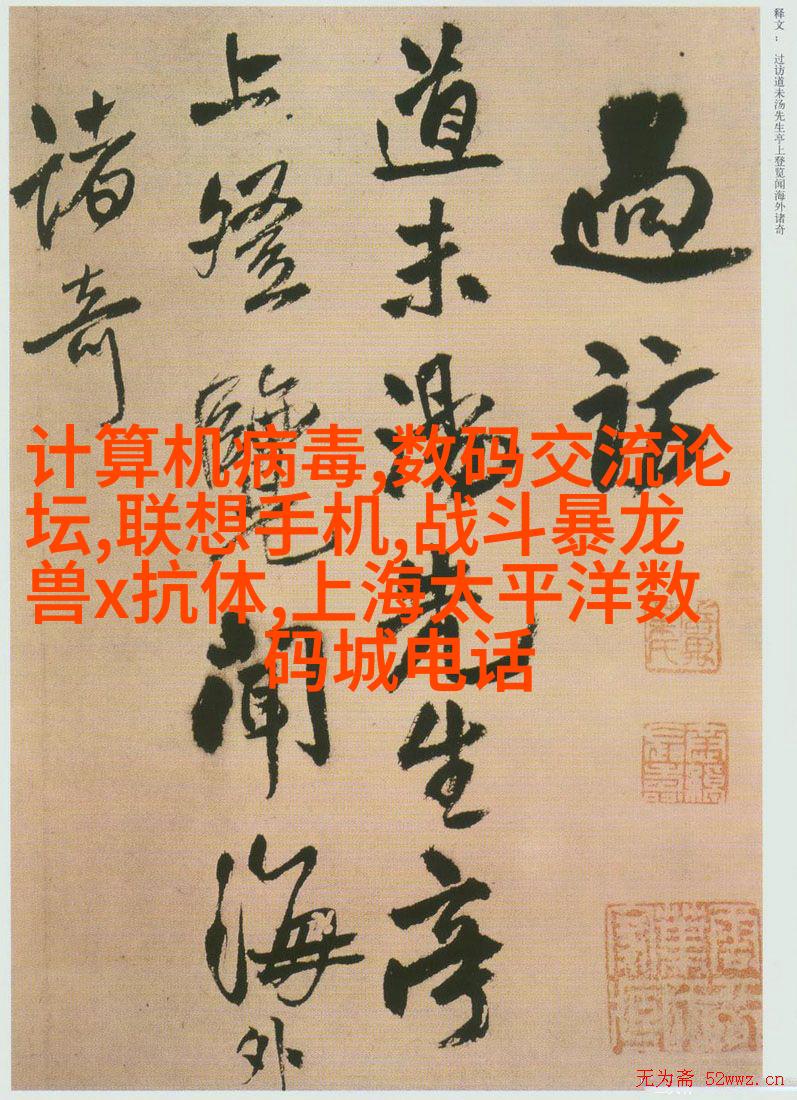 释文： 过访道未汤先生亭上登览闻海外诸奇
過訪
道未湯先生亭
上登覽聞海外
諸奇
计算机病毒,数码交流论
坛,联想手机,战斗暴龙
兽x抗体,上海太平洋数
码城电话
无为斋 52wwz.cn